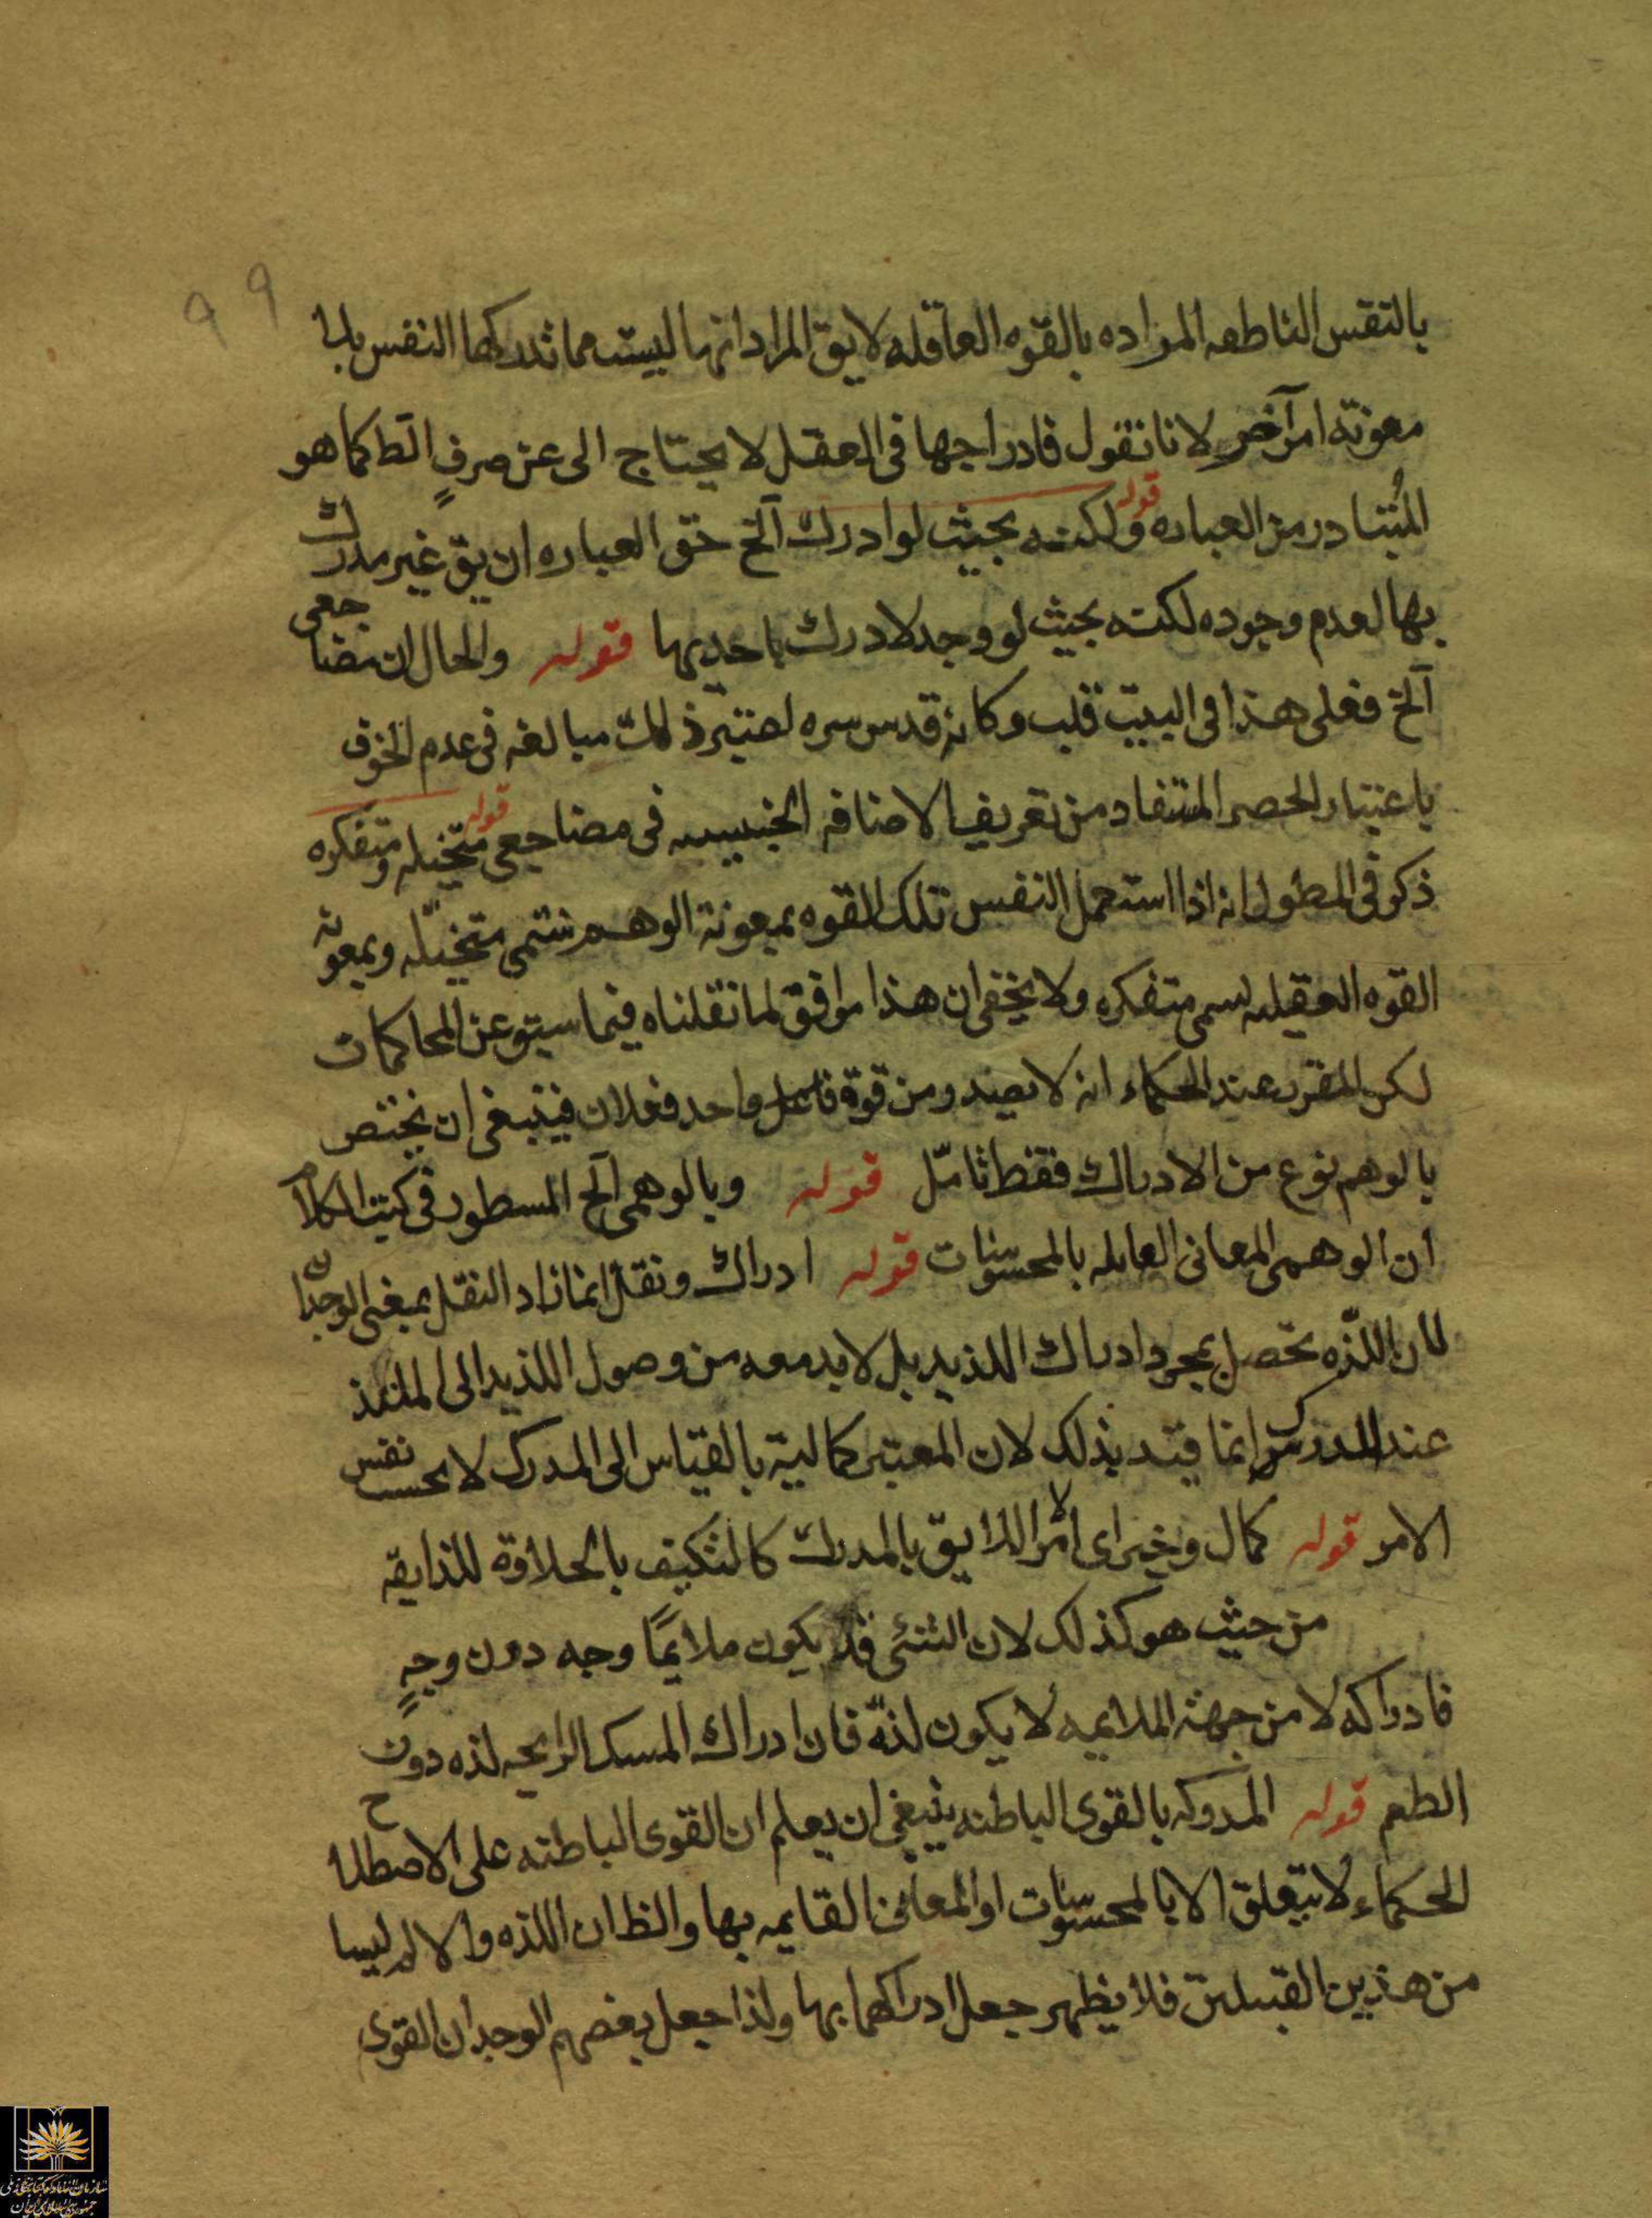 بالنفس الناطعه المراده بالقوه العاقله لايق المراد انها ليست مما تدركها النفس بلا
معونة امر آخر لانا نقول فادراجها فى العقل لا يحتاج الى عن صرفٍ الظ كما هو
المُتبادر من العباره قوله ولكنه بحيث لو ادرك آلخ حق العباره ان يق غير مدرك
بها لعدم وجوده لكنه بحيث لو وجد لادرك باحديها قوله والحال ان مضاجعى
آلخ فعلى هذا فى البيت قلب وكانه قدس سره ذلك مبالغه فى عدم الخوف
باعتبار الحصر المستفاد من تعريف الاضافه الجنسيه فى مضاجعى قوله متخيله ومتفكره
ذكر فى المطول انه اذا استعمل النفس تلك القوه بمعونة الوهم تسمى متخيّله وبمعونة
القوه العقليه يسمى متفكره ولا يخفى ان هذا موافق لما نقلناه فيما سبق عن المحاكمات
لكن المقرر عند الحكماء انه لا يصدر من قوة واحد فعلان فينبغى ان يختص
بالوهم نوع من الادراك فقط تامّل قوله وبالوهمى آلخ المسطور فى كتب الكلام
ان الوهمى المعانى بالمحسوسات قوله ادراك ونقل انما زاد النقل بمعنى الوجدان
لان اللذّه تحصل بمجرد ادراك اللذيد بل لابد معه من وصول اللذيد الى الملتذ
عند المدرك انما قيد بذلك لان المعتبر كمالية بالقياس الى المدرك لا بحسب نفس
الامر قوله كمال وخير اى الامر اللايق بالمدرك كالتكيف بالحلاوة للذايقه
من حيث هو كذلك لان الشئى قد يكون ملايمًا وجه دون وجهٍ
فادراكه لا من جهة الملايمه لا يكون لذة فان ادراك المسك الرايحه لذه دون
الطعم قوله المدركه بالقوى الباطنه ينبغى ان يعلم ان القوى الباطنه على الاصطلاح
الحكماء لا يتعلق الا بالمحسوسات او المعانى القايمه بها والظ ان اللذه والالم ليسا
من هذين القبيلين فلا يظهر جعل ادراكهما بها ولذا جعل بعضهم الوجدان القوى
٩٩